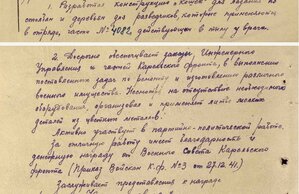 1. Разработал конструкцию "Кошек" для лазания по
столбам и деревьям для разведчиков, которые применялись
в отряде, части № 4082, действующем в тылу у врага.
2. Досрочно обеспечивает заказы Интернатного
Управления и части Карельского фронта, в выполнении
поставленных задач по ремонту и изготовлению различного
военного имущества. Несмотря на отсутствие необходимого
оборудования, организовал и применяет литьё мелких
деталей из цветных металлов.
Активно участвует в партийно-политической работе.
За отличную работу имеет благодарность и
денежную награду от Военного Совета Карельского
фронта (Приказ Войскам К.Ф. №3 от 27.12.41).
Заслуживает представления к награде